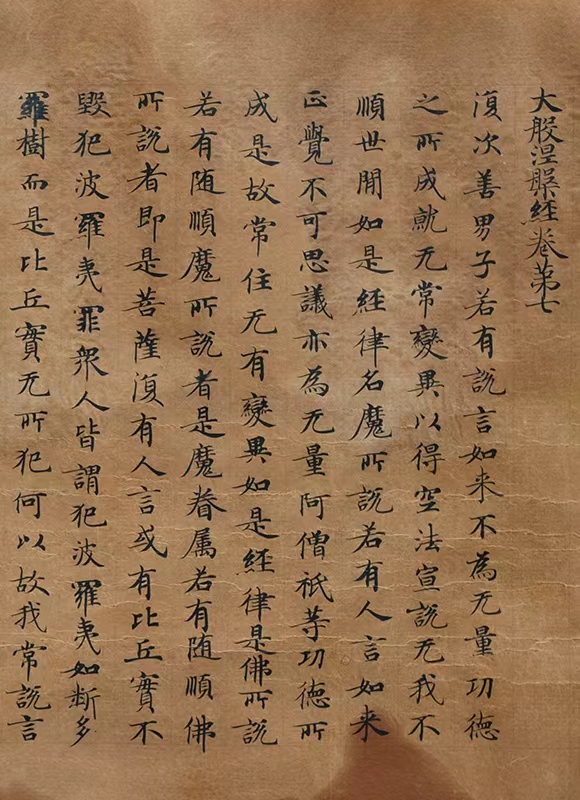 大般涅槃经卷第七
復次善男子若有說言如来不為无量功德
之所成就无常變異以得空法宣說无我不
順世間如是経律名魔所說若有人言如来
正覺不可思議亦為无量阿僧祇等功德所
成是故常住无有變異如是経律是佛所說
若有随順魔所說者是魔眷属若有随順佛
所說者即是菩薩復有人言或有比丘實不
毀犯波羅夷罪衆人皆謂犯波羅夷如断多
羅樹而是比丘實无所犯何以故我常說言